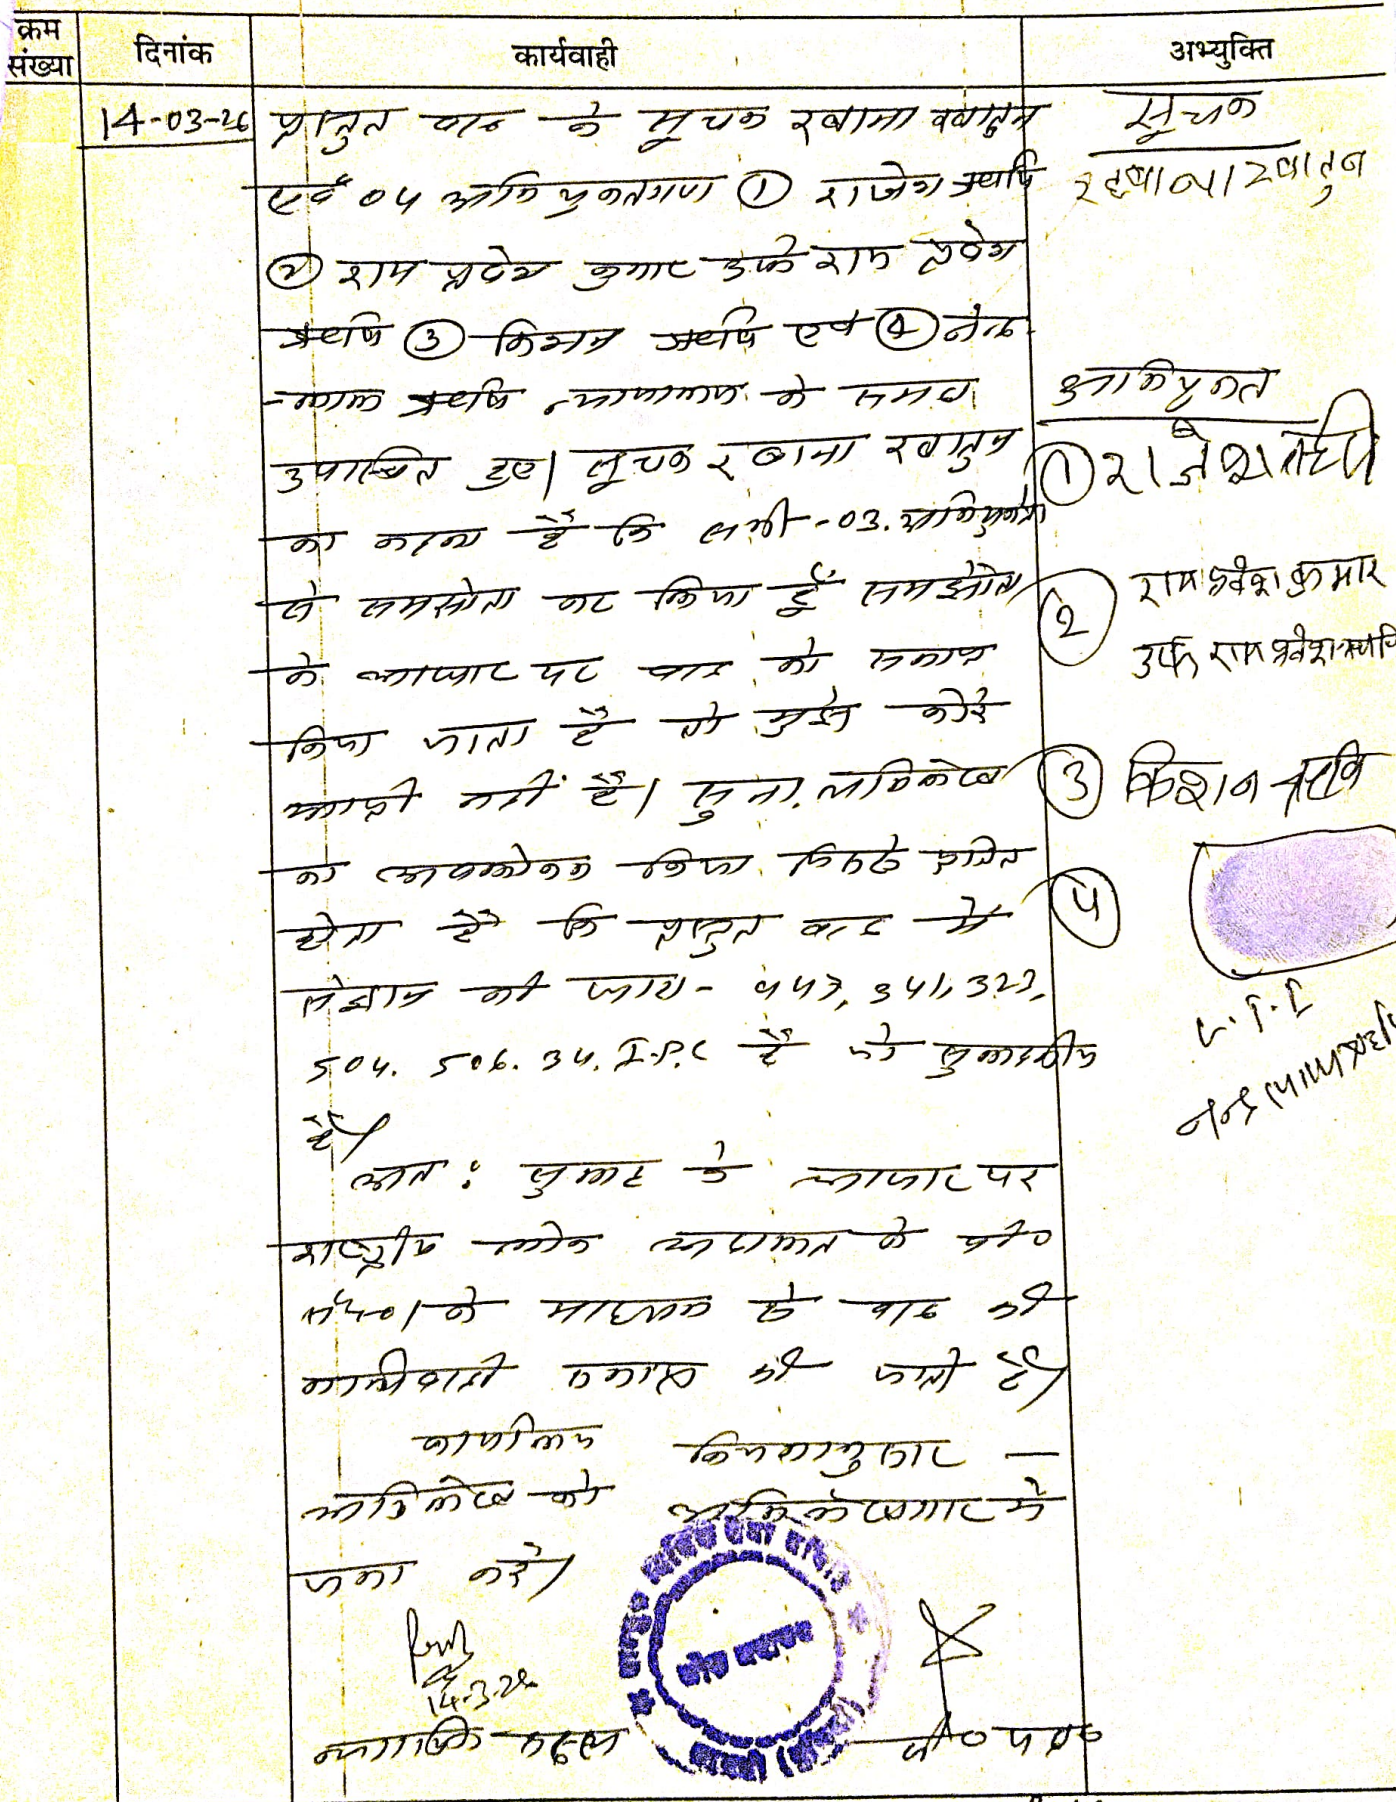 क्रम संख्या
दिनांक
कार्यवाही
अभ्युक्ति
14-03-26
प्रस्तुत वाद के सूचक रवाना खातुन
एवं 04 अभियुक्तगण ① राजेश ऋषि
② राम प्रवेश कुमार उर्फ राम प्रवेश
ऋषि ③ किशन ऋषि एवं ④ नन्द
लाल ऋषि न्यायालय के समक्ष
उपस्थित हुए। सूचक रवाना खातुन
का कहना है कि सभी-03. अभियुक्तों
से समझौता कर लिया हूँ समझौता
के आधार पर वाद को समाप्त
किया जाता है तो मुझे कोई
आपत्ती नहीं है। सुना. अभिलेख
का अवलोकन किया. जिससे प्रतित
होता है कि प्रस्तुत वाद में
संज्ञान की धारा- 447, 341, 323,
504. 506. 34. I.P.C है जो सुलहनीय
है।
अत: सुलह के आधार पर
राष्ट्रीय लोक अदालत के पी०
सं०-01 के माध्यम से वाद की
कार्यवाही समाप्त की जाती है।
कार्यालय नियमानुसार —
अभिलेख को अभिलेखागार में
जमा करें।
14-3-26
न्यायिक सदस्य
लोक अदालत
सूचक
रवाना खातुन
अभियुक्त
① राजेश ऋषि
② राम प्रवेश कुमार
उर्फ राम प्रवेश ऋषि
③ किशन ऋषि
④
L.T.I
नन्दलाल ऋषि